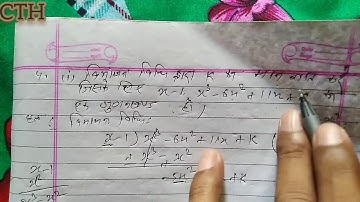 CTH
4. (i) विभाजन विधि द्वारा K का मान ज्ञात करें
जिसके लिए x-1, x³-6x²+11x+ का
एक गुणनखण्ड है।
हल: विभाजन विधि:
x-1) x³-6x²+11x+K (
+x³ x²
-5x² +K
x-1
x²
x³-x²